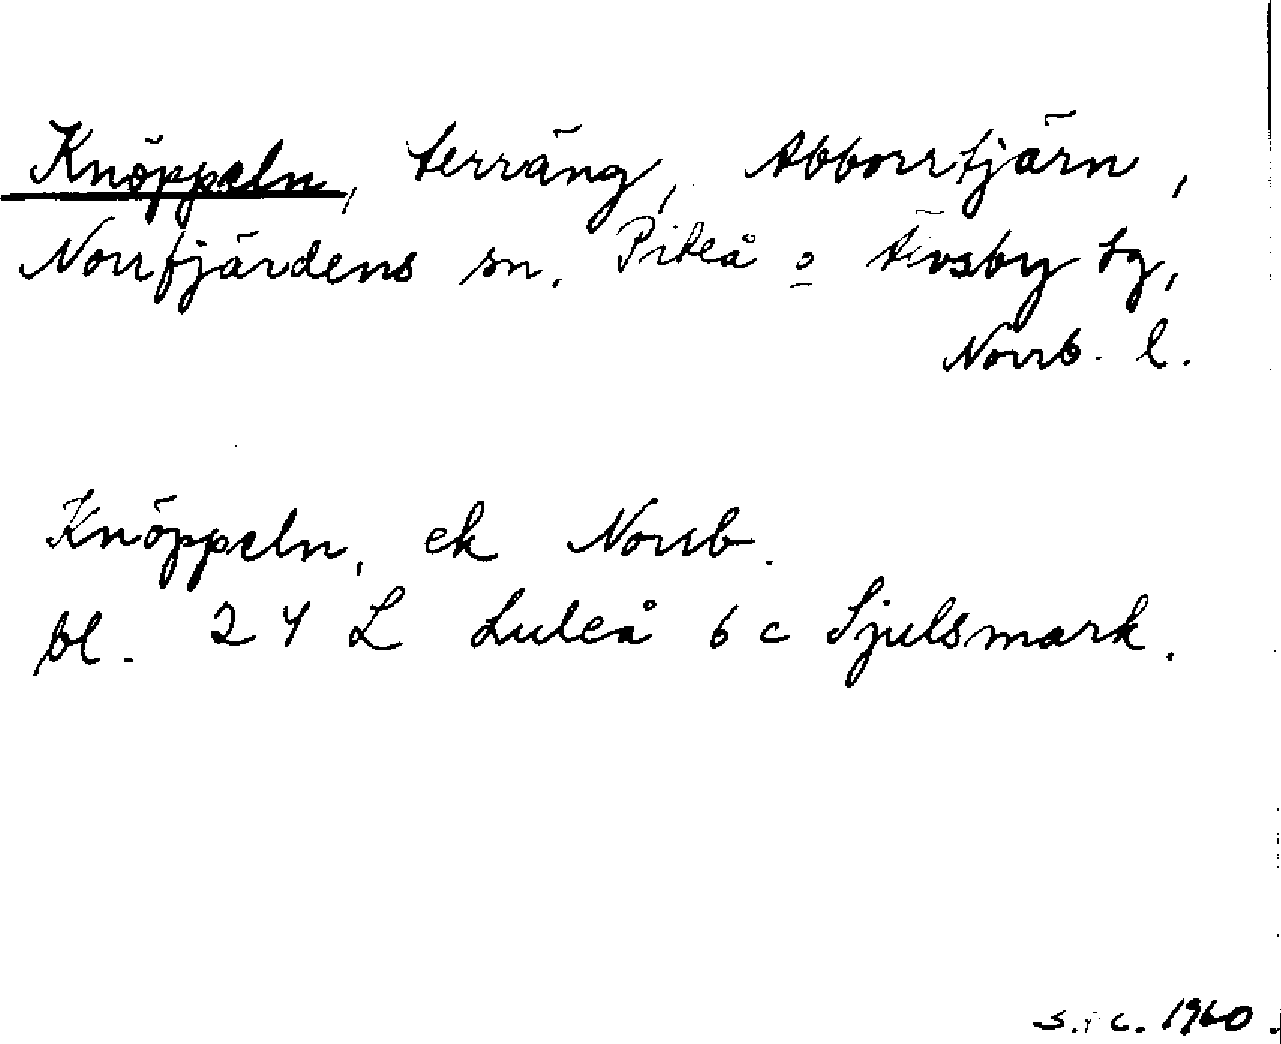 Knöppeln, terräng, Abborrtjärn,
Norrfjärdens sn. Piteå o Älvsby tg,
Norrb. l.
Knöppeln, ek Norrb.
bl. 24 L Luleå 6 c Sjulsmark.
1960.